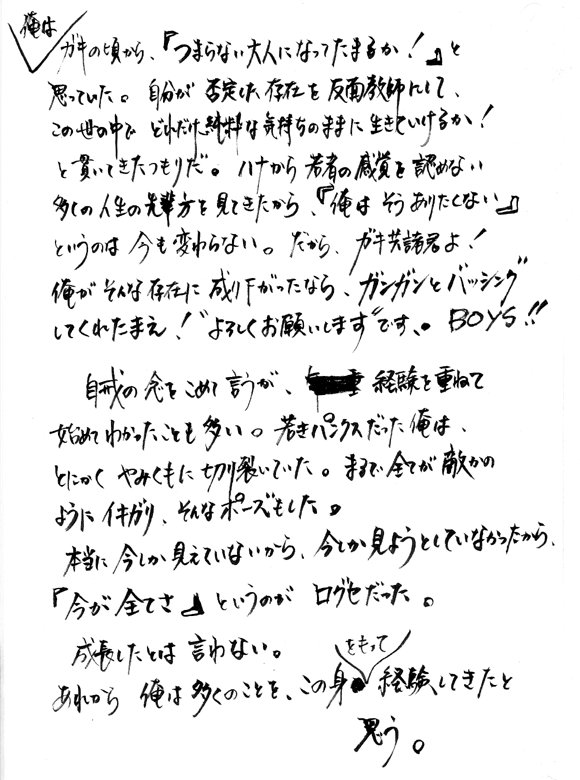 俺は
ガキの頃から、『つまらない大人になってたまるか！』と
思っていた。自分が否定した存在を反面教師にして、
この世の中でどれだけ純粋な気持ちのままに生きていけるか！
と貫いてきたつもりだ。ハナから若者の感覚を認めない
多くの人生の先輩方を見てきたから、『俺はそうありたくない』
というのは今も変わらない。だから、ガキ共諸君よ！
俺がそんな存在に成り下がったなら、ガンガンとバッシング
してくれたまえ！"よろしくお願いします"です、。BOYS!!
自戒の念をこめて言うが、経験を重ねて
始めてわかったことも多い。若きパンクスだった俺は、
とにかくやみくもに切り裂いていた。まるで全てが敵かの
ようにイキがり、そんなポーズもした。
本当に今しか見えていないから、今しか見ようとしていなかったから、
『今が全てさ』というのが口グセだった。
成長したとは言わない。
あれから俺は多くのことを、この身をもって経験してきたと
思う。